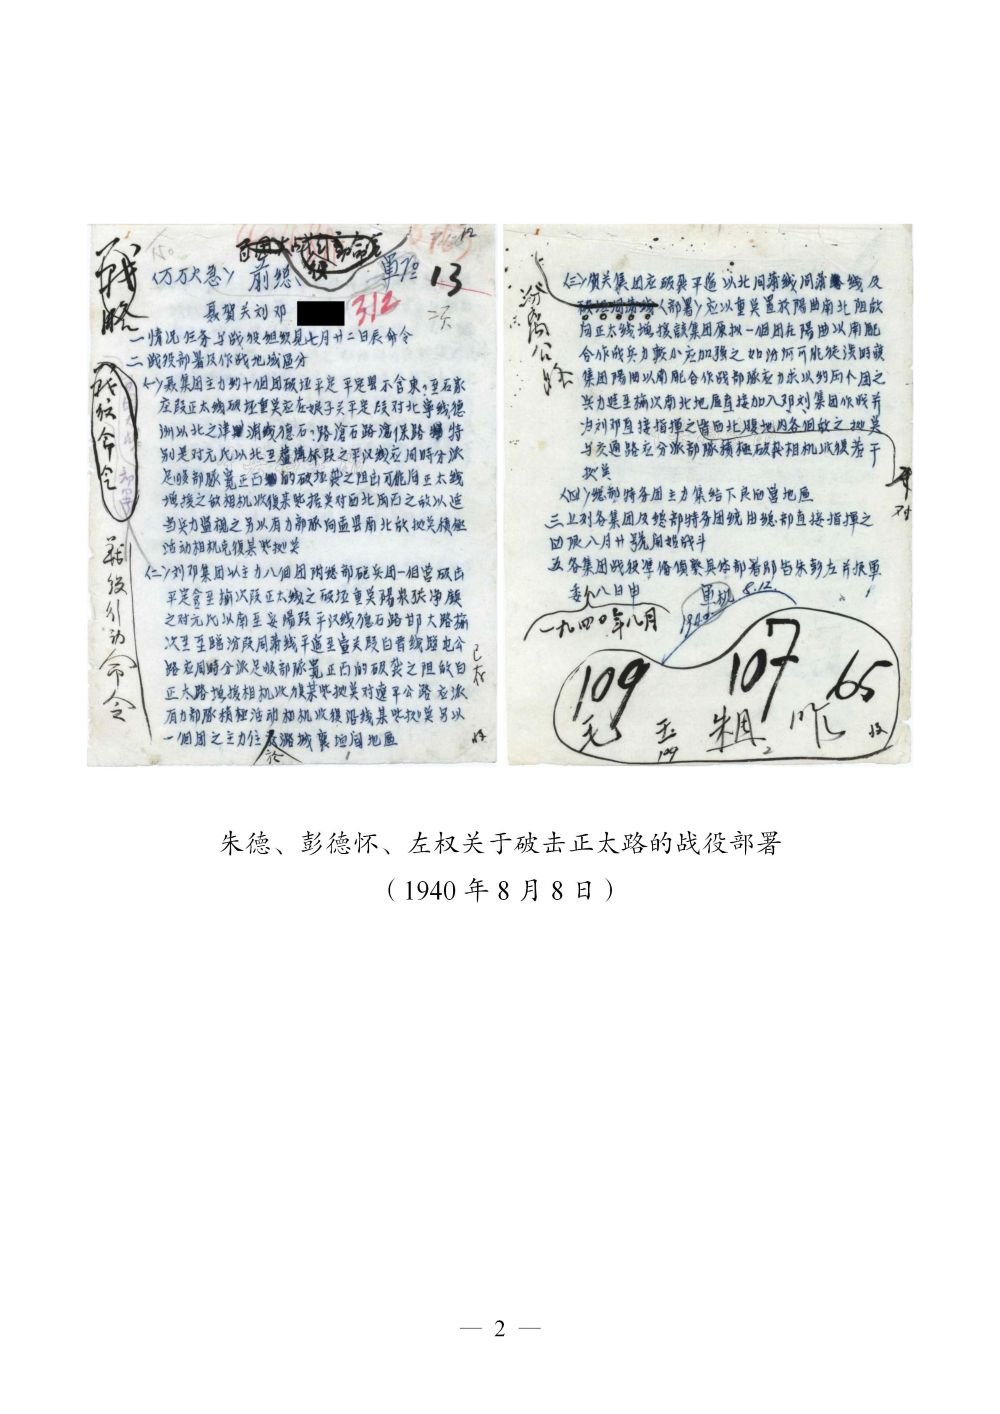 战略
战役命令
战役行动命令
(万万火急) 前总
13
312
聂贺关刘邓
一 情况任务与战役组织见七月廿二日辰命令
二 战役部署及作战地域区分
(一)聂集团主力约十个团破坏平定 平定县不含东 至石家
庄段正太线破坏重点应在娘子关平定段对北宁线德
州以北之津浦线德石路沧石路沧保路 特
别是对元氏以北至卢沟桥段之平汉线应同时分派
足够部队宽正面的破袭之阻击可能向正太线
增援之敌相机收复某些据点对西北两面之敌以适
当兵力监视之另以有力部队向盂县南北敌据点积极
活动相机克复某些据点
(二)刘邓集团以主力八个团附总部砲兵团一个营破击
平定含至榆次段正太线之破坏重点阳泉张净镇
之对元氏以南至安阳段平汉线德石路邯大路榆
次至临汾段同蒲线平遥至壶关段白晋线临屯公
路应同时分派足够部队宽正面的破袭之阻敌向
正太路增援相机收复某些据点对辽平公路应派
有力部队积极活动相机收复沿线某些据点另以
一个团之主力位 潞城襄垣间地区
汾离公路
(三)贺关集团应破袭平遥以北同蒲线 线及
(部署)应以重点置于阳曲南北阻敌
向正太线增援该集团原拟一个团在阳曲以南配
合作战兵力较小应加强之如汾河可能徒涉时贺
集团阳曲以南配合作战部队应力求以约两个团之
兵力进至榆次南北地区直接加入邓刘集团作战并
归刘邓直接指挥之晋西北腹地内各个敌之据点
与交通路应分派部队积极破袭相机收复若干
据点
(四)总部特务团主力集结下良西营地区
三 上列各集团及总部特务团统由总部直接指挥之
四 限八月廿号开始战斗
五 各集团战役准备侦察具体部署即告朱彭左并报军
委 八日申
一九四〇年八月
109 107 65
毛 王 朱周
朱德、彭德怀、左权关于破击正太路的战役部署
（1940 年 8 月 8 日）
— 2 —